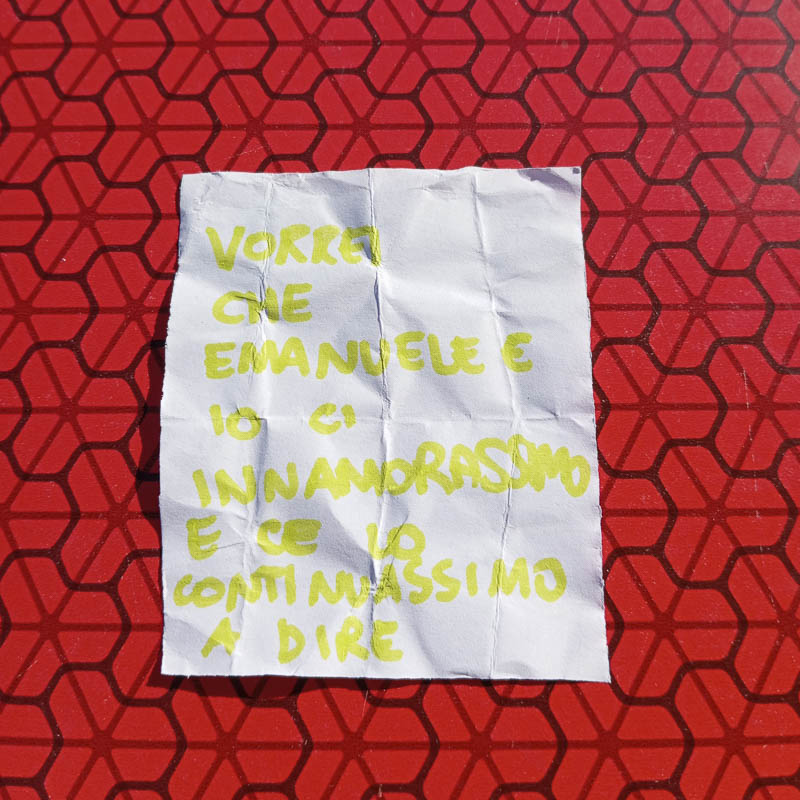 VORREI
CHE
EMANUELE E
IO CI
INNAMORASSIMO
E CE LO
CONTINUASSIMO
A DIRE